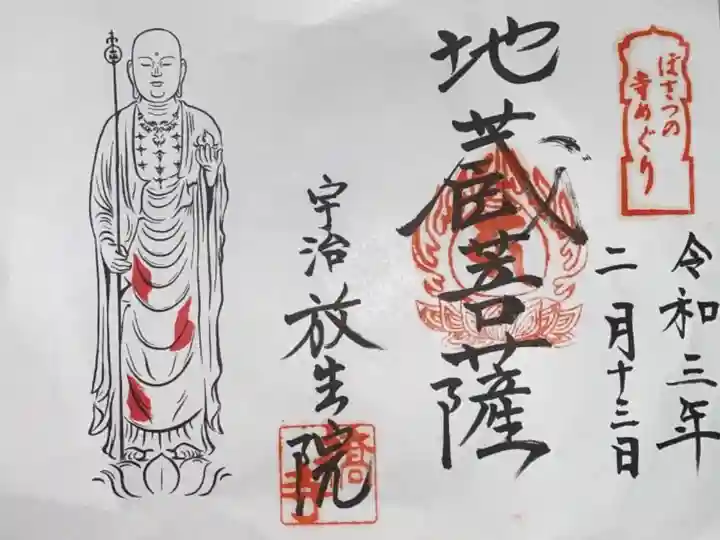 ぼさつの
寺めぐり
令和三年
二月十三日
地蔵菩薩
宇治
放生院
橋寺